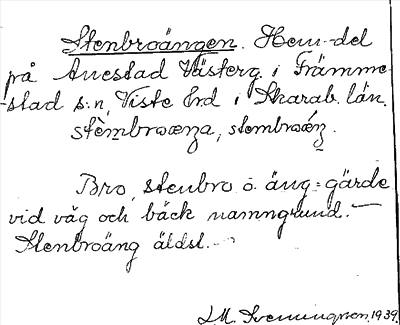 Stenbroängen. Hem-del
på Åvestad Västerg. i Främme-
stad s:n, Viste hrd i Skarab. län.
stémbroæŋa, stembroǽŋ.
Bro, stenbro o. äng = gärde
vid väg och bäck namngrund. —
Stenbroäng äldst. —
L.M. Svenningsson. 1939.